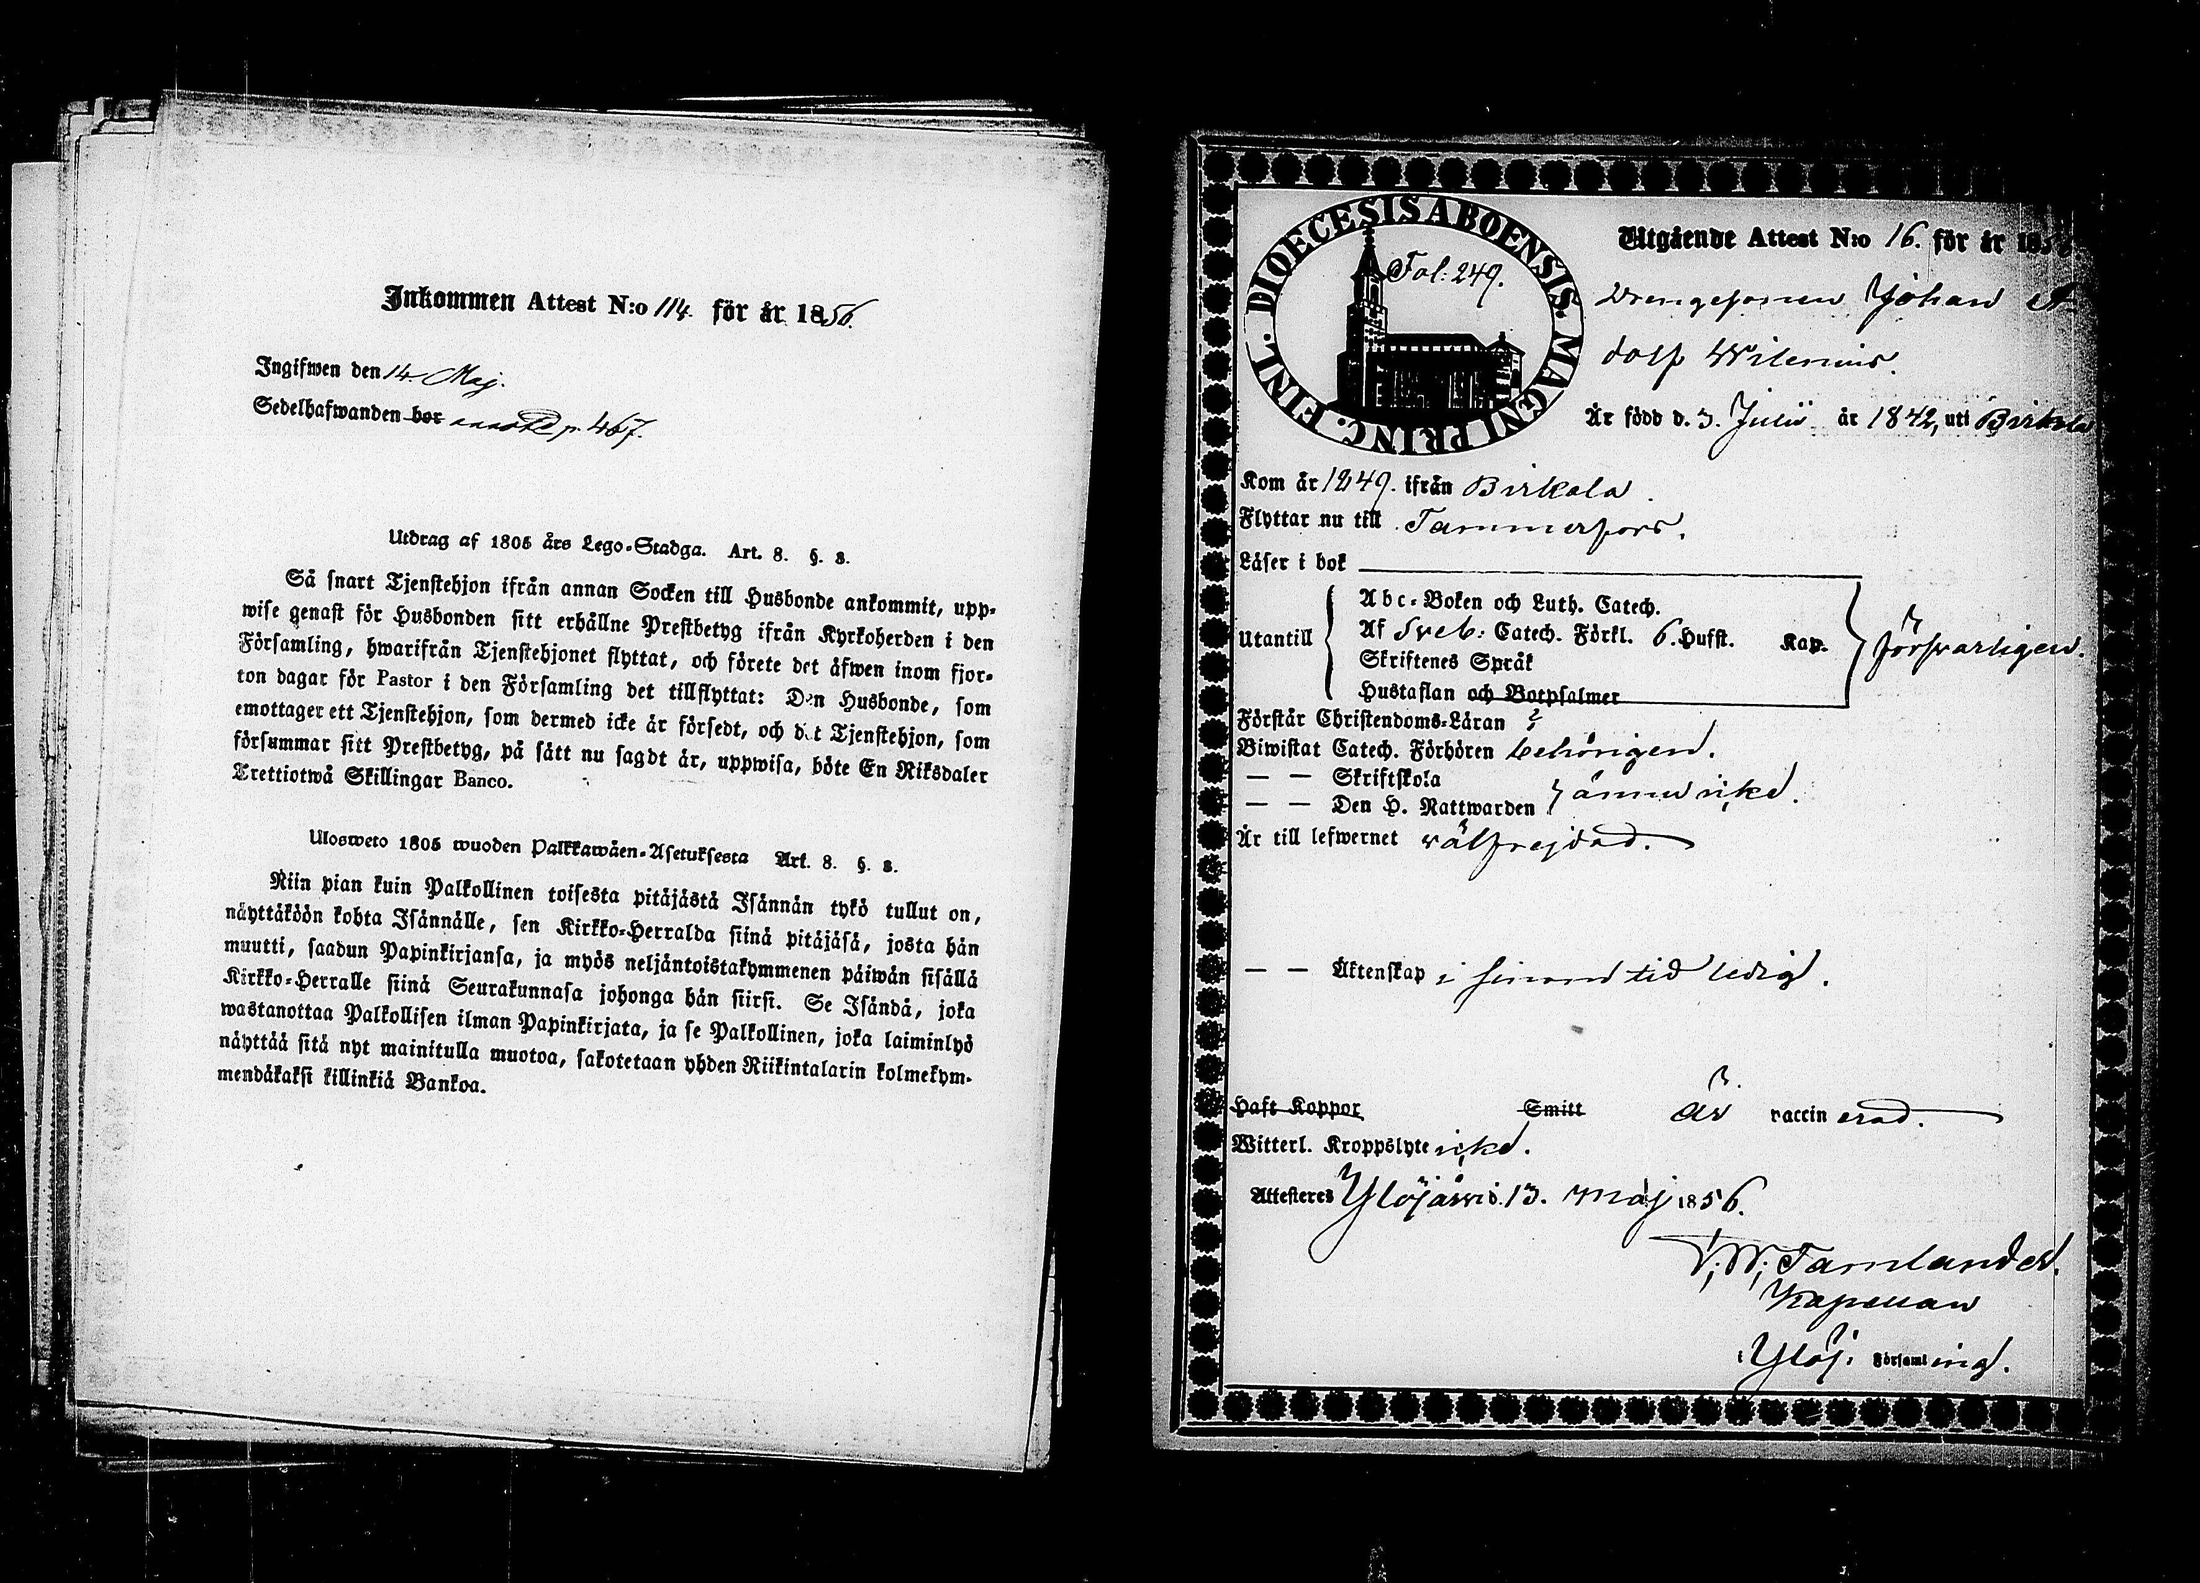 Inkommen Attest N:o 114. för år 1856.
Ingifwen den 14. Maj.
Sedelhafwanden bor p. 467.
Utdrag af 1805 års Lego-Stadga. Art. 8. §. 3.
Så snart Tjenstehjon ifrån annan Socken till Husbonde ankommit, upp-
wise genast för Husbonden sitt erhållne Prestbetyg ifrån Kyrkoherden i den
Församling, hwarifrån Tjenstehjonet flyttat, och förete det äfwen inom fjor-
ton dagar för Pastor i den Församling det tillflyttat: Den Husbonde, som
emottager ett Tjenstehjon, som dermed icke är försedt, och det Tjenstehjon, som
försummar sitt Prestbetyg, på sätt nu sagdt är, uppwisa, böte En Riksdaler
Trettiotwå Skillingar Banco.
Ulosweto 1805 wuoden Palkkawäen-Asetuksesta Art. 8. §. 3.
Niin pian kuin Palkollinen toisesta pitäjästä Isännän tykö tullut on,
näyttäköön kohta Isännälle, sen Kirkko-Herralda siinä pitäjäsä, josta hän
muutti, saadun Papinkirjansa, ja myös neljäntoistakymmenen päiwän sisällä
Kirkko-Herralle siinä Seurakunnasa johonga hän siirsi. Se Isändä, joka
wastanottaa Palkollisen ilman Papinkirjata, ja se Palkollinen, joka laiminlyö
näyttää sitä nyt mainitulla muotoa, sakotetaan yhden Riikintalarin kolmekym-
mendäkaksi killinkiä Bankoa.
DIOECESIS ABOENSIS. MAGNI PRINC. FINL.
Fol: 249.
Utgående Attest N:o 16. för år 1856
Drengesonen Johan A-
dolf Wilenius.
Är född d. 3. Julii år 1842, uti Birkala
Kom år 1849. ifrån Birkala.
Flyttar nu till Tammerfors.
Läser i bok
Utantill
Abc-Boken och Luth. Catech.
Af Sveb: Catech. Förkl. 6. Hufst. Kap.
Skriftenes Språk
Hustaflan och Botpsalmer
försvarligen.
Förstår Christendoms-Läran
Biwistat Catech. Förhören behörigen.
— — Skriftskola
— — Den H. Nattwarden ännu icke.
Är till lefwernet välfrejdad.
— — Äktenskap i sinom tid ledig.
Haft Koppor Smitt är vaccinerad.
Witterl. Kroppslyte icke.
Attesteres Ylöjärvi d. 13. Maj 1856.
Tamlander.
Kapellan
i Ylöj. Församling.